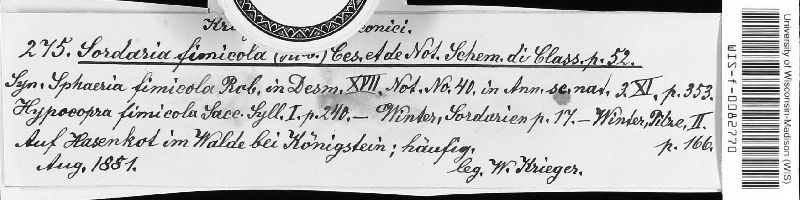 275. Sordaria fimicola (Rob.) Ces. et de Not. Schem. di Class. p. 52.
Syn. Sphaeria fimicola Rob. in Desm. XVII. Not. No. 40. in Ann. sc. nat. 3. XI. p. 353.
Hypocopra fimicola Sacc. Syll. I. p. 240. — Winter, Sordarien p. 17. — Winter, Pilze, II. p. 166.
Auf Hasenkot im Walde bei Königstein; häufig.
Aug. 1881. leg. W. Krieger.
University of Wisconsin-Madison (WIS)
WIS-f-0082770